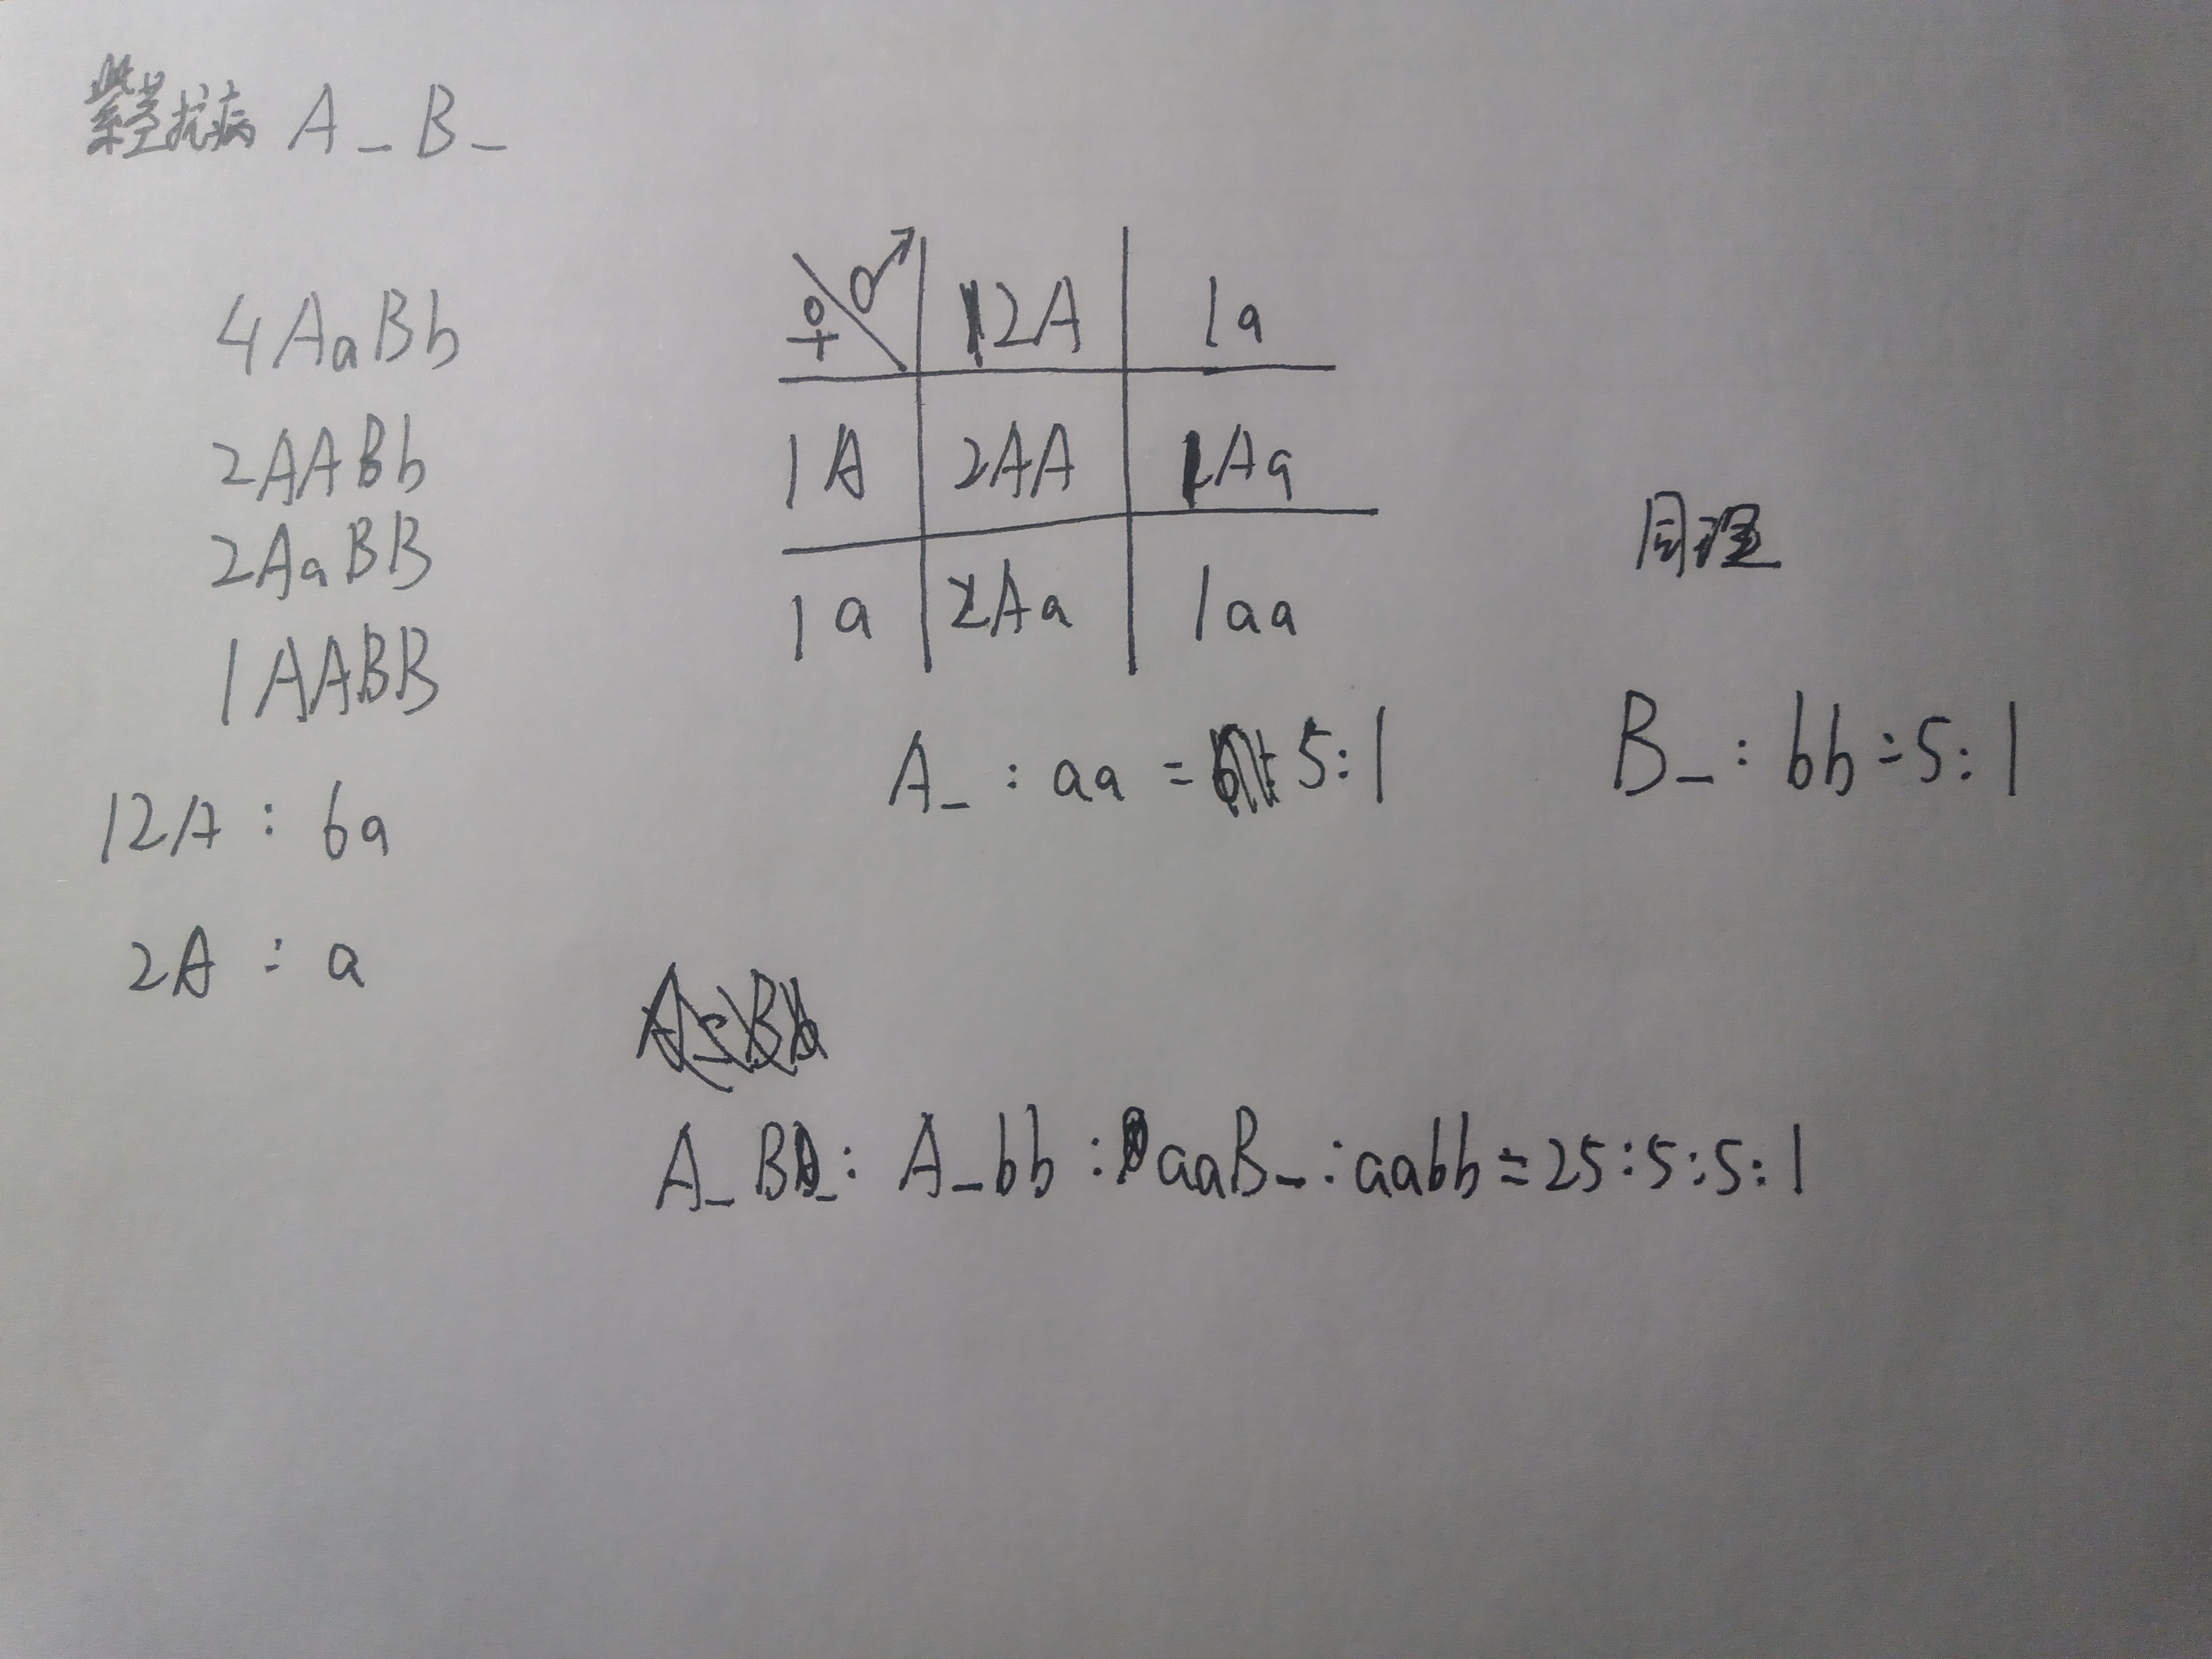 紫茎抗病 A_B_
4AaBb
2AABb
2AaBB
1AABB
12A : 6a
2A : a
♀ ♂ 2A 1a
1A 2AA 1Aa
1a 2Aa 1aa
A_ : aa = 5:1
同理
B_ : bb = 5:1
A_B_ : A_bb : aaB_ : aabb = 25:5:5:1